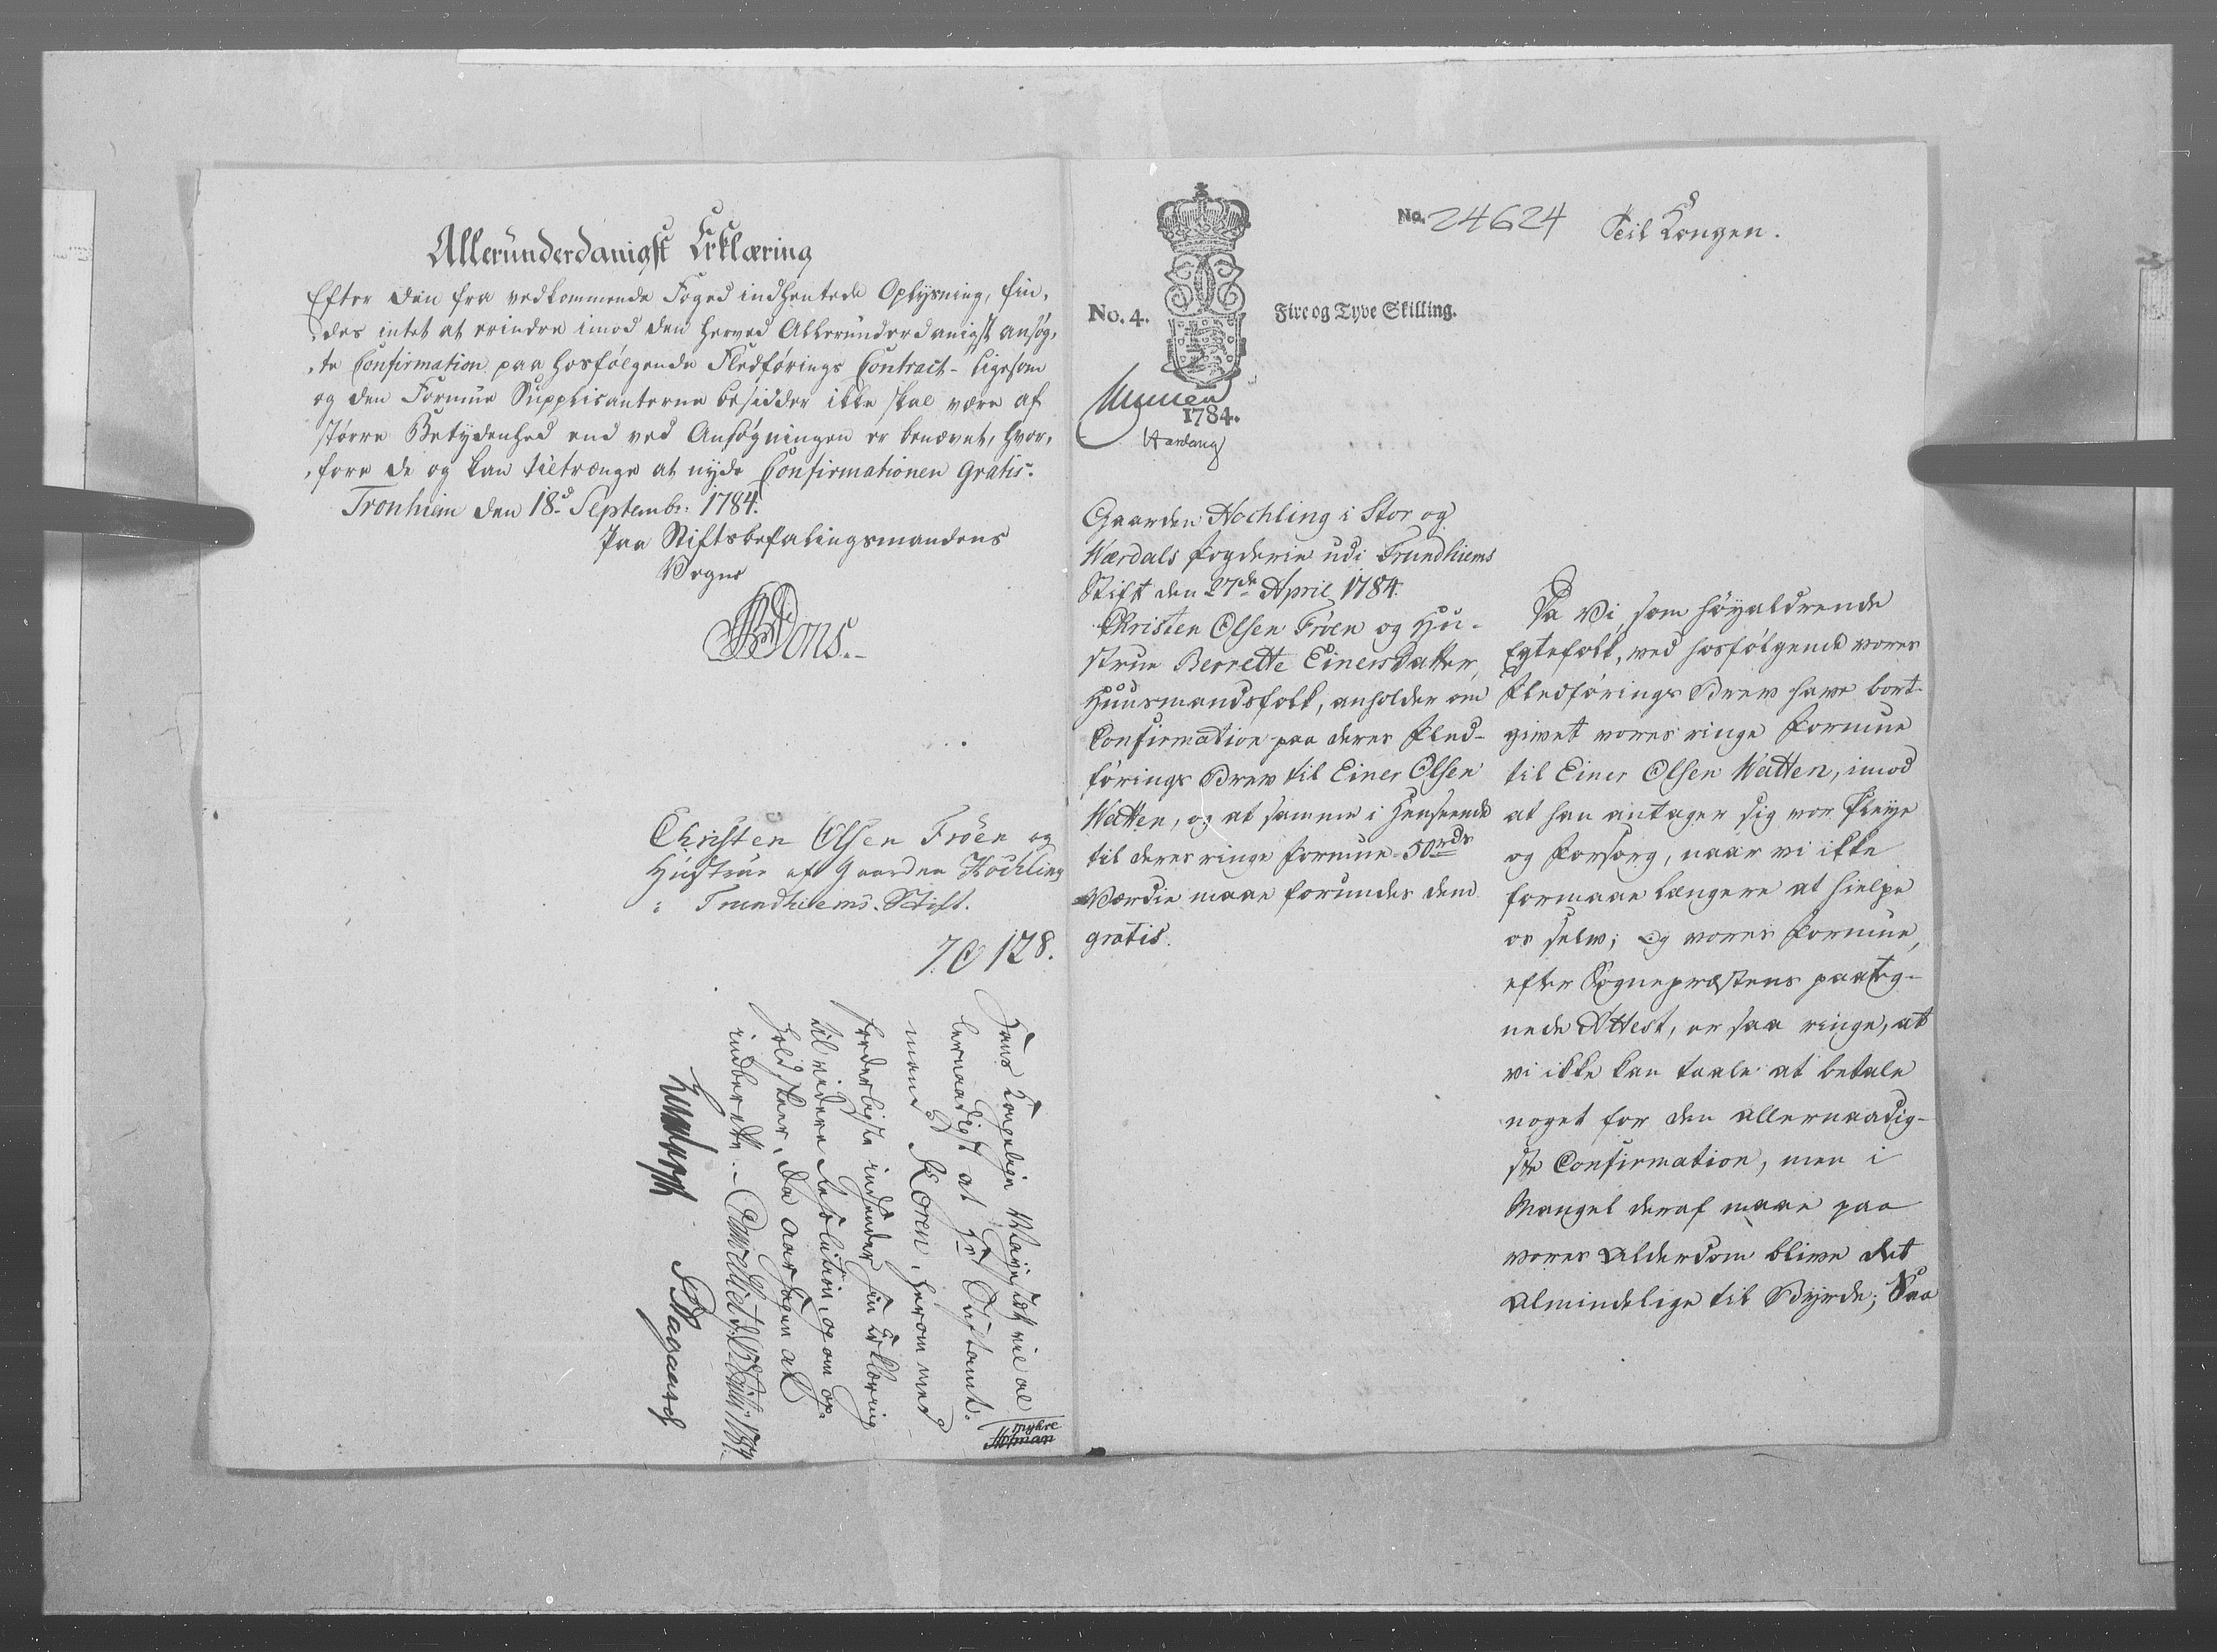 Allerunderdanigst Erklæring
Efter den fra vedkommende Foged indhentede Oplysning, fin,
,des intet at erindre imod den herved Allerunderdanigst ansøg,
,te Confirmation paa hosfølgende Fledførings Contract - ligesom
og den Formue Supplicanterne besidder ikke skal være af
større Betydenhed end ved Ansøgningen er benævnt, hvor,
,fore de og kan tiltrænge at nyde Confirmationen Gratis.
Tronhiem den 18d Septembr: 1784.
Paa Stiftsbefalingsmandens
Vegne
Dons.
Christen Olsen Fröen og
Hustrue af Gaarden Höchling
i Trundhiems Stift.
7 C 128.
Hans Kongelige Mayestæt vil al
lernaadigst at Hr Stiftamt-
mand Koren, herom med
forderligste indsender sin Erklæring
til videre Resolution, og om op-
hold skeer, da aarsagen at
indberette. - Cancelliet d. 1784.
Aagaard
myhre
No. 24624
Til Kongen.
No. 4.
Fire og Tyve Skilling.
1784.
Gaarden Hochling i Stor og
Værdals Fogderie udi Trundhiems
Stift den 27de April 1784.
Christen Olsen Fröen og Hu-
strue Berrette Einersdatter,
Huusmandsfolk, anholder om
Confirmation paa deres Fled-
førings Brev til Einer Olsen
Watten, og at samme i Henseende
til deres ringe Formue 50 rdr
Værdie maae forundes dem
gratis.
Da Vi, som høyaldrende
Egtefolk, ved hosfølgende vores
Fledførings Brev have bort-
givet vores ringe Formue
til Einer Olsen Watten, imod
at han antager sig vor Pleye
og Forsorg, naar vi ikke
formaae længere at hielpe
os selv; og vores Formue,
efter Sognepræstens paateg-
nede Attest, er saa ringe, at
vi ikke kan taale at betale
noget for den allernaadig-
ste Confirmation, men i
Mangel deraf maae paa
vores Alderdom blive det
almindelige til Byrde; Saa